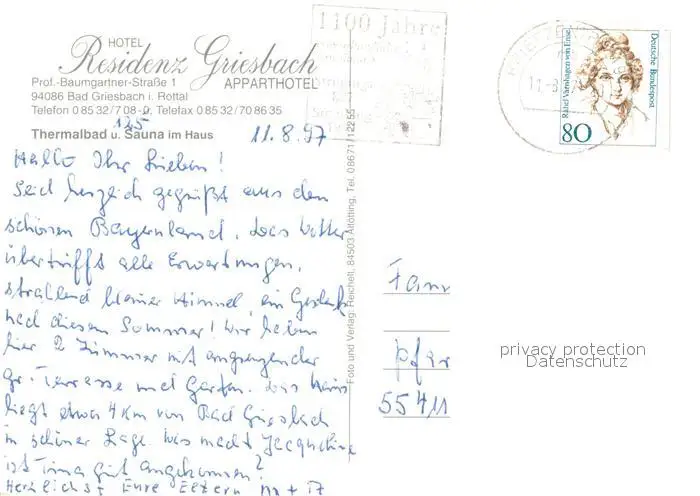 HOTEL
Residenz Griesbach
APPARTHOTEL
Prof.-Baumgartner-Straße 1
94086 Bad Griesbach i. Rottal
Telefon 0 85 32/7 08-0, Telefax 0 85 32/70 86 35
125
Thermalbad u. Sauna im Haus
11.8.97
Hallo Ihr Lieben!
Seid herzlich gegrüßt aus dem
schönen Bayernland, das Wetter
übertrifft alle Erwartungen,
strahlend blauer Himmel, ein Geschenk
nach diesem Sommer! Wir haben
hier 2 Zimmer mit angrenzender
gr. Terrasse und Garten. Das Haus
liegt etwa 4 Km von Bad Griesbach
in schöner Lage. Was macht Jacqueline
ist Tina gut angekommen?
Herzlichst Eure Eltern M + P
Foto und Verlag: Reichelt, 84503 Altötting, Tel. 08671/12255
1100 Jahre
Rahel Varnhagen von Ense
Deutsche Bundespost
80
Fam
Pfar
55411
privacy protection
Datenschutz